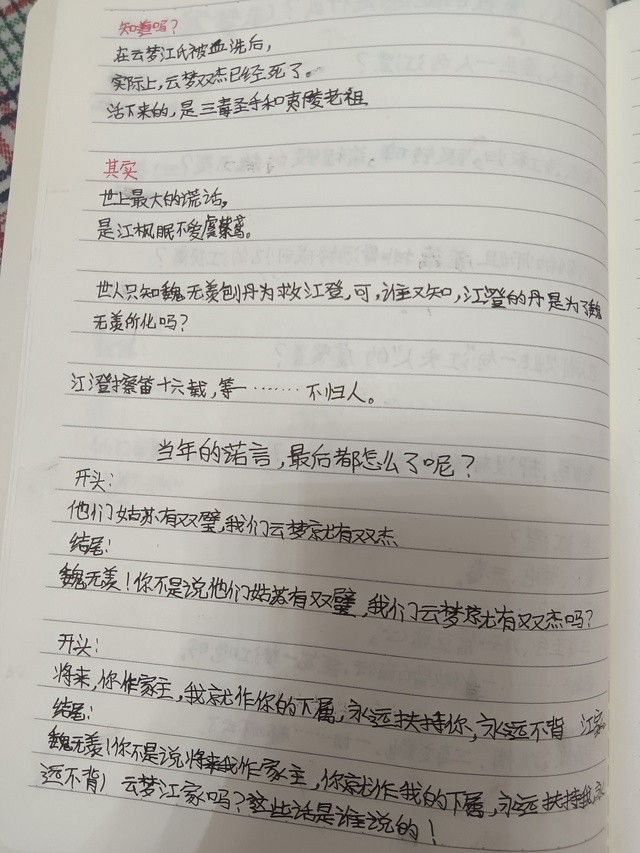 知道吗？
在云梦江氏被血洗后，
实际上，云梦双杰已经死了。
活下来的，是三毒圣手和夷陵老祖
其实
世上最大的谎话，
是江枫眠不爱虞紫鸢。
世人只知魏无羡刨丹为救江登，可，谁又知，江澄的丹是为了魏
无羡所化吗？
江澄擦笛十六载，等一········不归人。
当年的诺言，最后都怎么了呢？
开头：
他们姑苏有双璧，我们云梦就有双杰
结尾：
魏无羡！你不是说他们姑苏有双璧，我们云梦就有双杰吗？
开头：
将来，你作家主，我就作你的下属，永远扶持你，永远不背 江家
结尾：
魏无羡！你不是说将来我作家主，你就作我的下属，永远扶持我，永
远不背 云梦江家吗？这些话是谁说的！